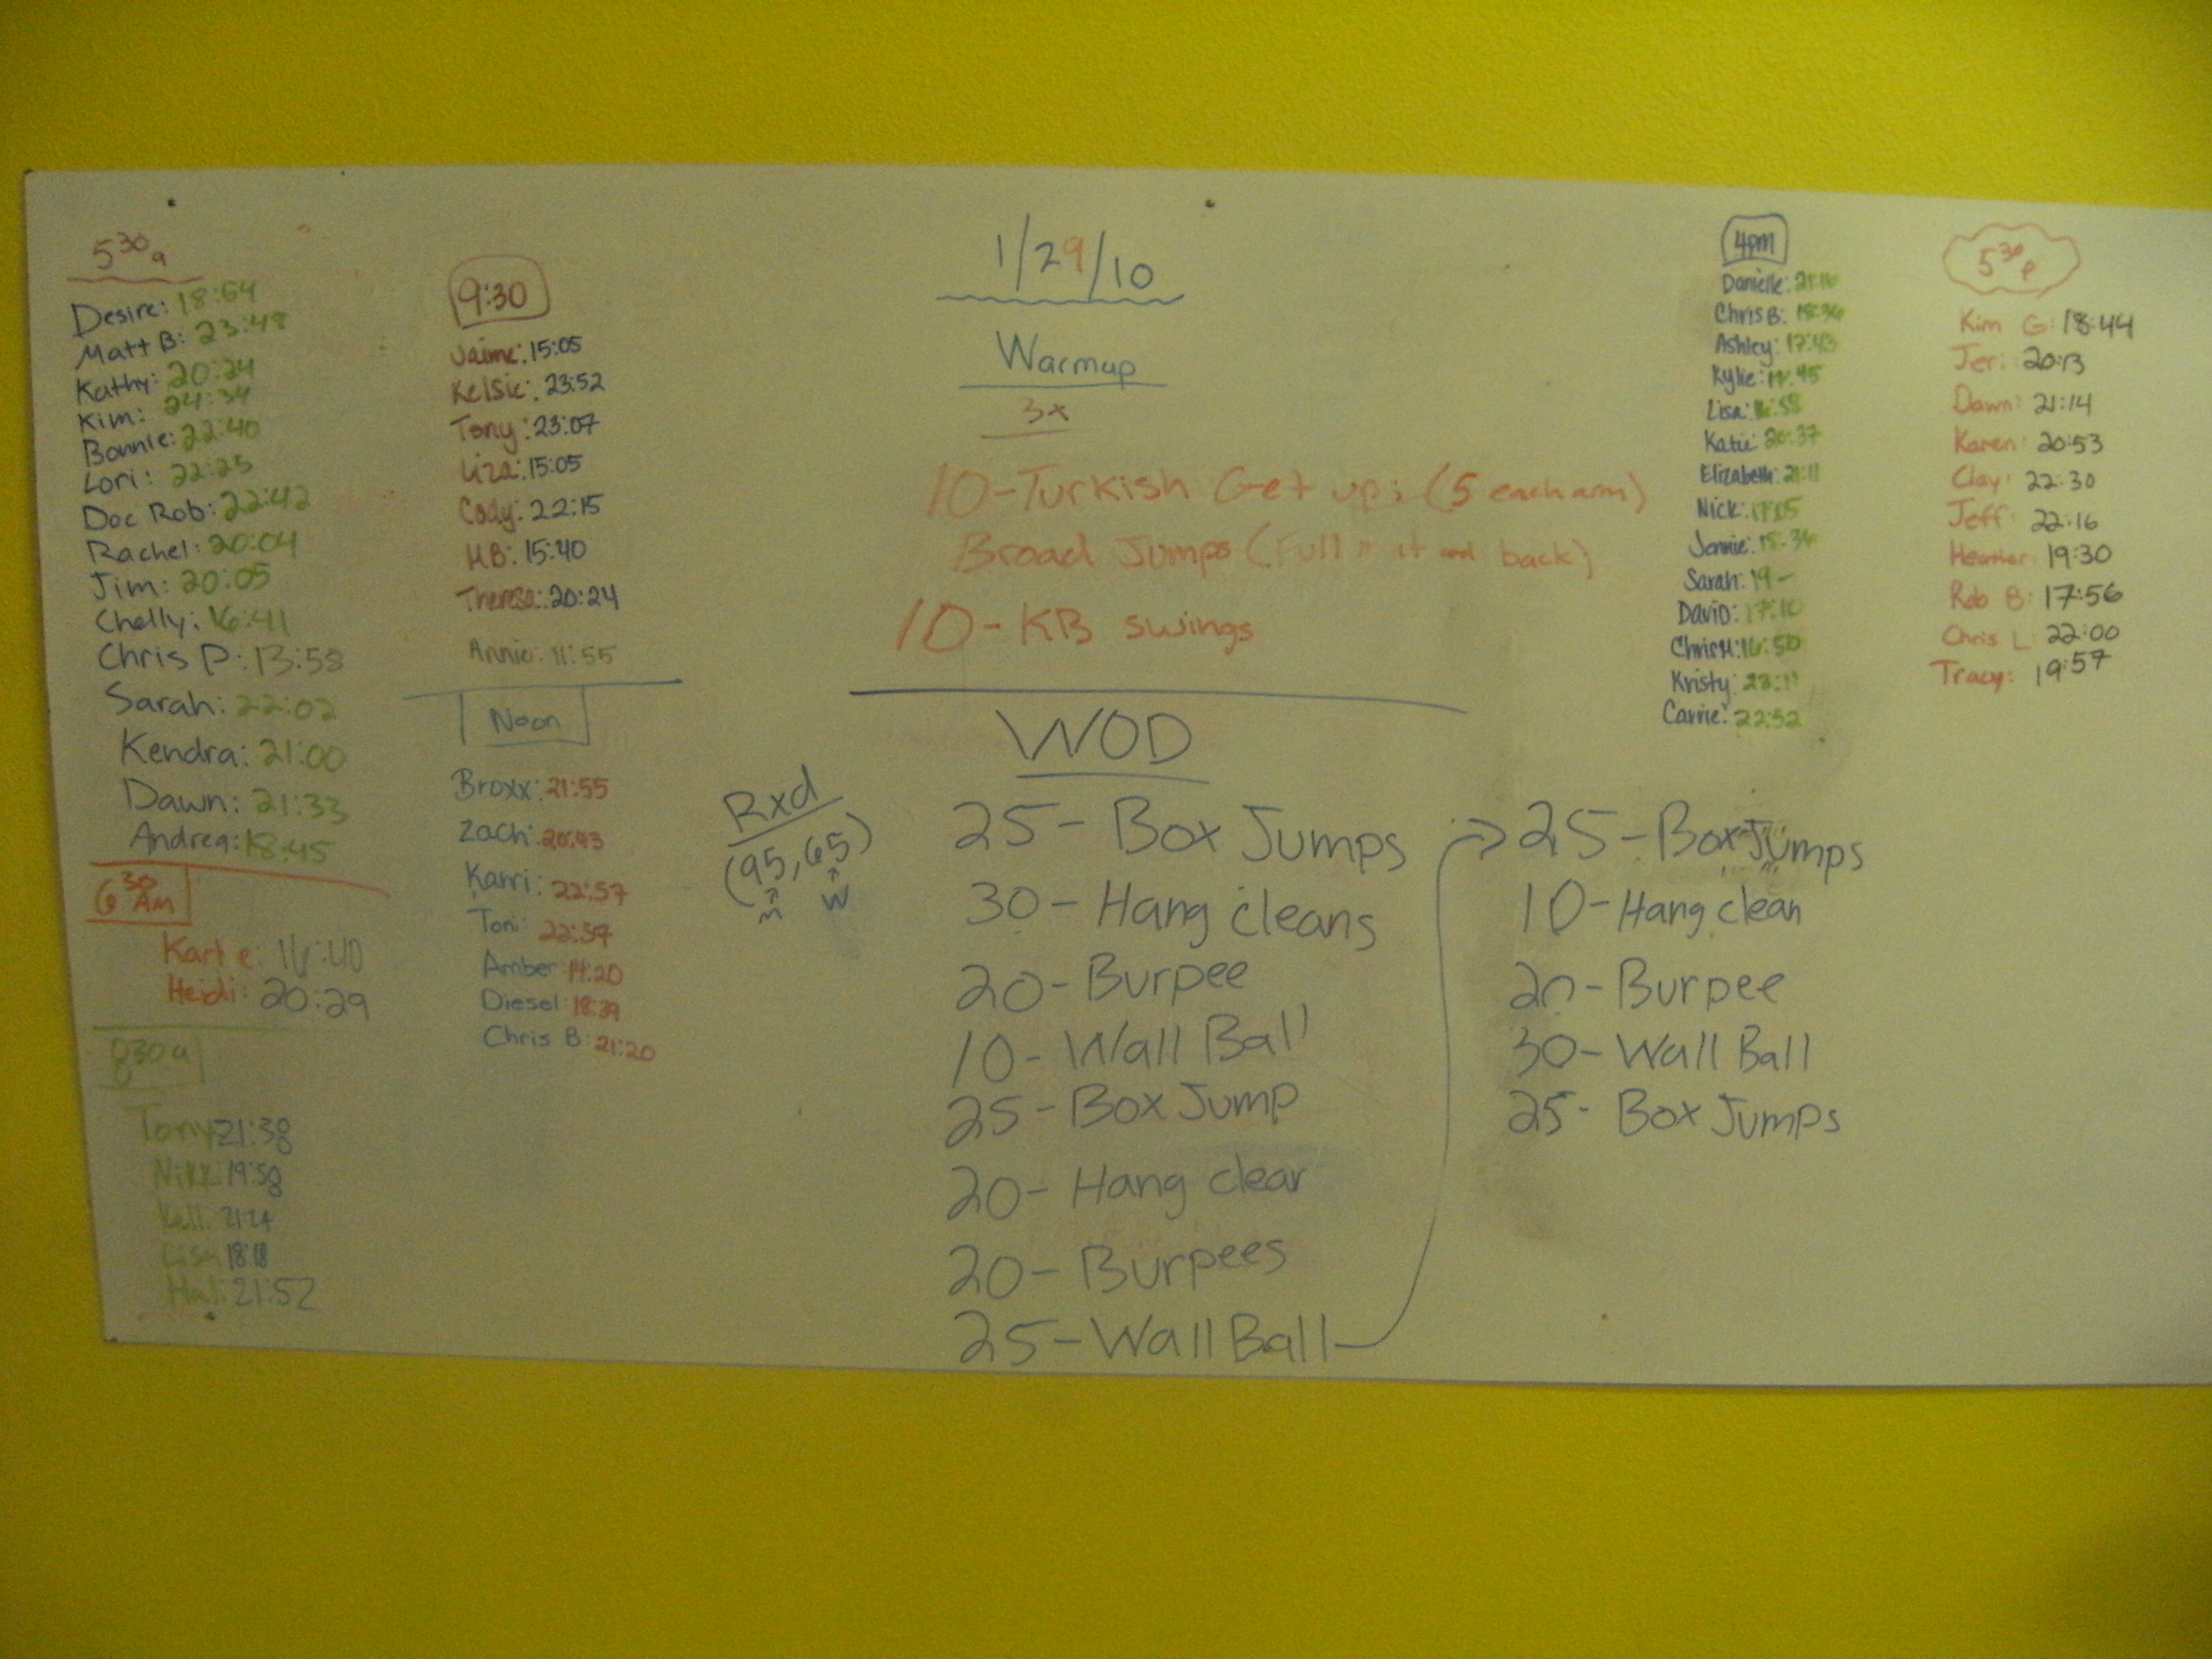 5 30 a
Desire: 18:54
Matt B: 23:48
Kathy: 20:24
Kim: 24:34
Bonnie: 22:40
Lori: 22:25
Doc Rob: 22:42
Rachel: 20:04
Jim: 20:05
Chelly: 16:41
Chris P: 13:58
Sarah: 22:02
Kendra: 21:00
Dawn: 21:33
Andrea: 18:45
6 30 AM
16:40
Heidi: 20:29
8 30 a
Tony 21:38
19:58
Lisa 18:18
21:52
9:30
Jaime: 15:05
Kelsie: 23:52
Tony: 23:07
Liza: 15:05
Cody: 22:15
MB: 15:40
Theresa: 20:24
Annie: 11:55
Noon
Broxx: 21:55
Zach: 20:43
Karri: 22:57
Toni: 22:59
Amber: 14:20
Diesel: 18:39
Chris B: 21:20
1/29/10
Warmup
3x
10-Turkish Get ups (5 each arm)
Broad Jumps (Full mat and back)
10-KB swings
WOD
Rxd
(95, 65)
m w
25-Box Jumps
30-Hang cleans
20-Burpee
10-Wall Ball
25-Box Jump
20-Hang clean
20-Burpees
25-Wall Ball
25-Box Jumps
10-Hang clean
20-Burpee
30-Wall Ball
25-Box Jumps
4pm
Danielle:
Chris B: 18:36
Ashley: 17:43
Kylie:
Lisa:
Katie: 20:37
Elizabeth: 21:11
Nick: 17:05
18:36
Sarah: 19-
David: 17:10
Chris H: 16:50
Kristy: 23:11
Carrie: 22:52
5 30 p
Kim G: 18:44
Jer: 20:13
Dawn: 21:14
Karen: 20:53
Clay: 22:30
Jeff: 22:16
Heather: 19:30
Rob B: 17:56
Chris L: 22:00
Tracy: 19:57